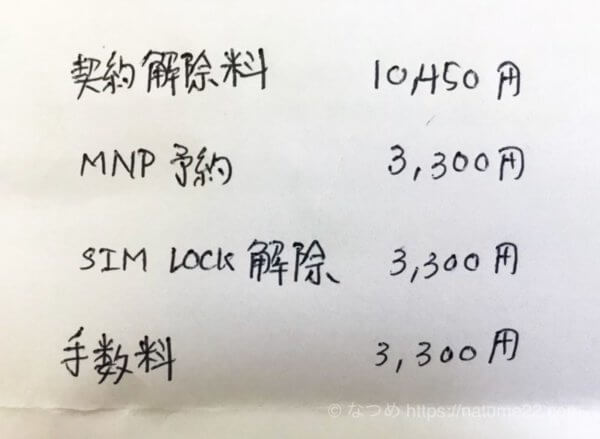 契約解除料 10,450円
MNP 予約 3,300円
SIM LOCK 解除 3,300円
手数料 3,300円
© なつめ https://natome22.com